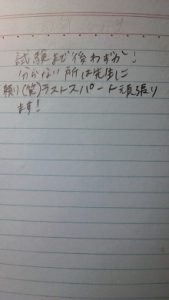 試験まで後わずか!
分からない所は先生に
頼り(笑)ラストスパート頑張り
ます!